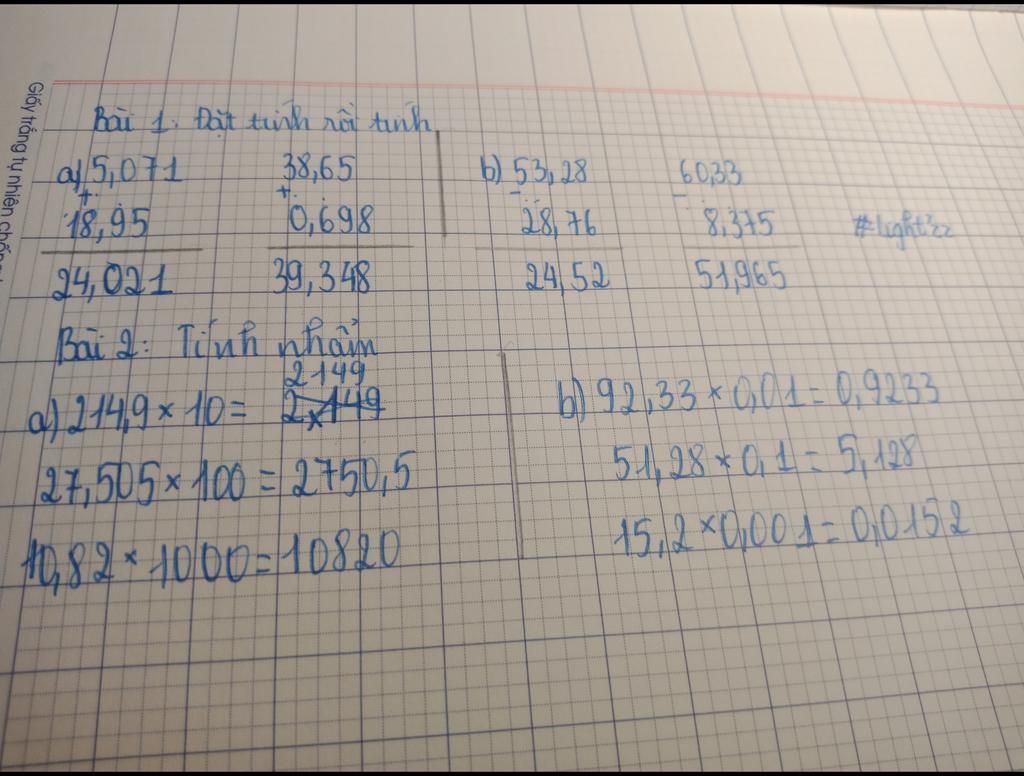 Giấy trắng tự nhiên chống
Bài 1: Đặt tính rồi tính
a) 5,071 38,65 b) 53,28 60,33
+ + - -
18,95 0,698 28,76 8,375 #light'zz
24,021 39,348 24,52 51,965
Bài 2: Tính nhẩm
2149
a) 214,9 × 10 = b) 92,33 × 0,01 = 0,9233
27,505 × 100 = 2750,5 51,28 × 0,1 = 5,128
10,82 × 1000 = 10820 15,2 × 0,001 = 0,0152